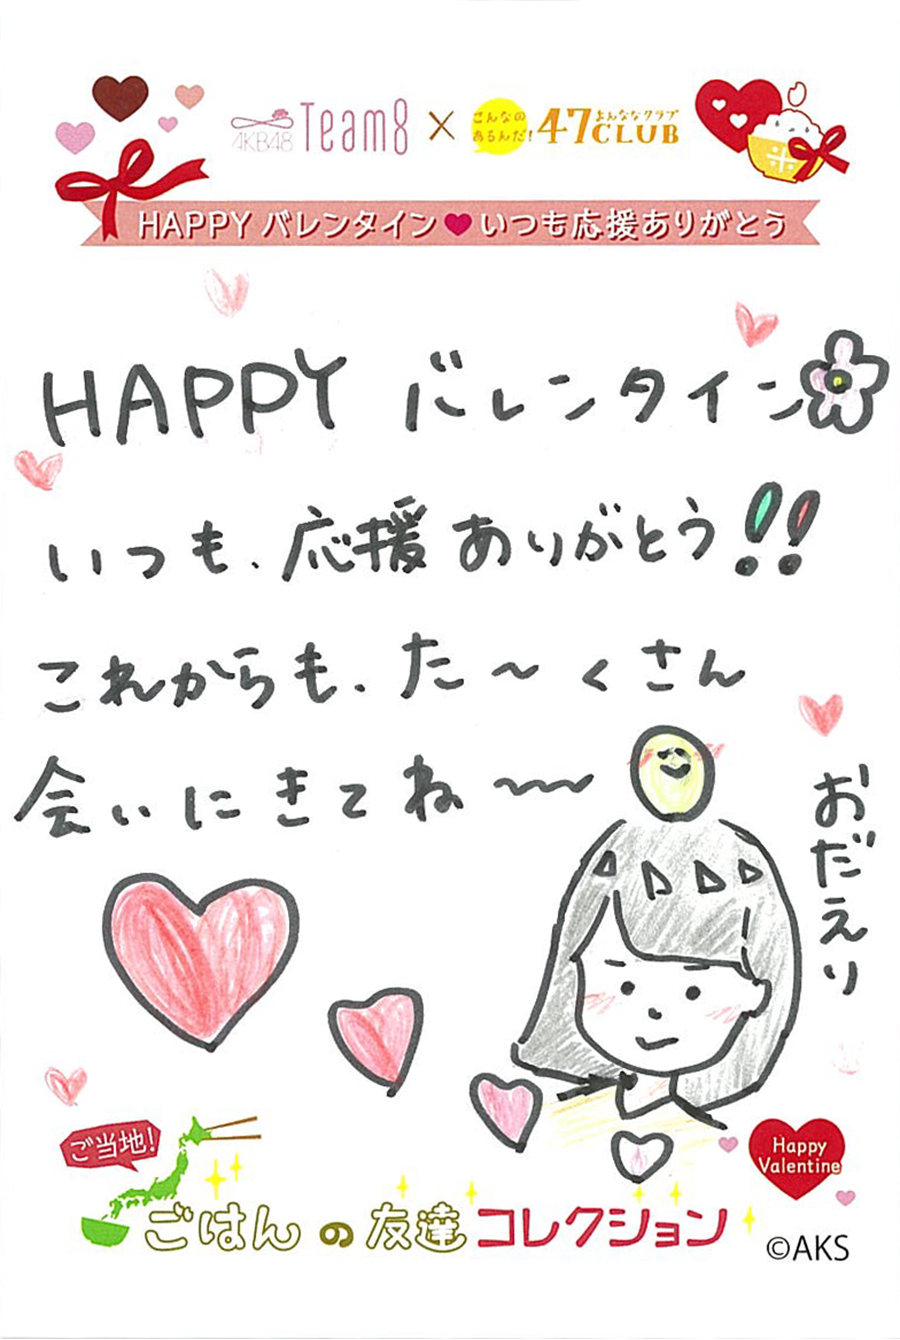 AKB48 Team8 × こんなの あるんだ! 47CLUB よんななクラブ
HAPPY バレンタイン♥いつも応援ありがとう
HAPPY バレンタイン
いつも、応援ありがとう!!
これからも、た〜くさん
会いにきてね〜〜
おだえり
ご当地!
ごはんの友達コレクション
Happy
Valentine
米
©AKS